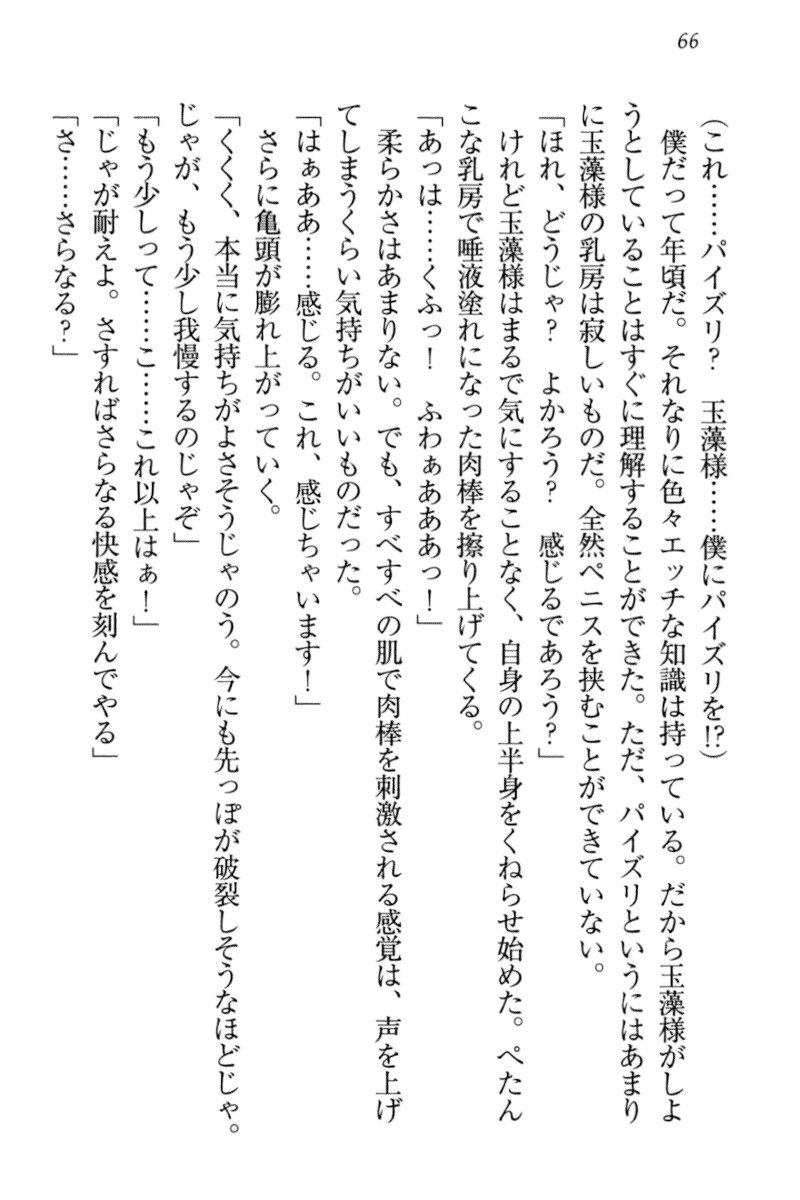 66
(これ……パイズリ？　玉藻様……僕にパイズリを!?)
僕だって年頃だ。それなりに色々エッチな知識は持っている。だから玉藻様がしよ
うとしていることはすぐに理解することができた。ただ、パイズリというにはあまり
に玉藻様の乳房は寂しいものだ。全然ペニスを挟むことができていない。
「ほれ、どうじゃ？　よかろう？　感じるであろう？」
けれど玉藻様はまるで気にすることなく、自身の上半身をくねらせ始めた。ぺたん
こな乳房で唾液塗れになった肉棒を擦り上げてくる。
「あっは……くふっ！　ふわぁあああっ！」
柔らかさはあまりない。でも、すべすべの肌で肉棒を刺激される感覚は、声を上げ
てしまうくらい気持ちがいいものだった。
「はぁああ……感じる。これ、感じちゃいます！」
さらに亀頭が膨れ上がっていく。
「くくく、本当に気持ちがよさそうじゃのう。今にも先っぽが破裂しそうなほどじゃ。
じゃが、もう少し我慢するのじゃぞ」
「もう少しって……こ……これ以上はぁ！」
「じゃが耐えよ。さすればさらなる快感を刻んでやる」
「さ……さらなる？」